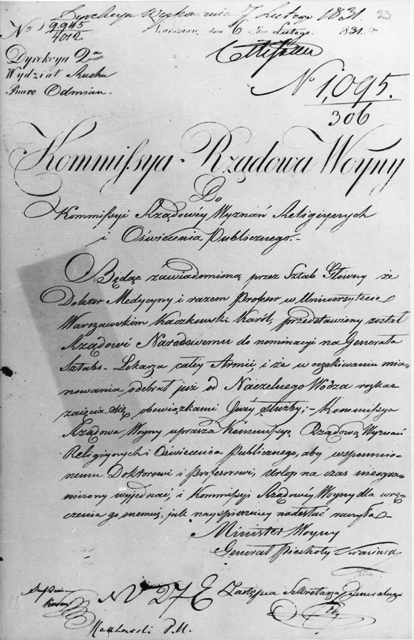 Dyrekcya 7 Lutego 1831.
No 9945/4012 Warszawa, dnia 6 Mca Lutego 1831.
Dyrekcya 2a
Wydział Ruchu
Biuro Odmian
No 1,095.
306
Kommissya Rządowa Woyny
Do
Kommissyi Rządowéy Wyznań Religiynych
i Oświecenia Publicznego.
Będąc zawiadomioną przez Sztab Główny że
Doktor Medycyny i razem Profesor w Uniwersytecie
Warszawskim Kaczkowski Karól, przedstawiony został
Rządowi Narodowemu do nominacyi na Generała
Sztabs-Lekarza całey Armii i że w oczekiwaniu mia-
nowania odebrał już od Naczelnego Wodza rozkaz
zajęcia się obowiązkami służby; Kommissya
Rządowa Woyny uprasza Kommissyą Rządową Wyznań
Religiynych i Oświecenia Publicznego, aby wspomnio-
nemu Doktorowi i Profesorowi, urlop na czas nieogra-
niczony wyjednać, i Kommissyi Rządowéy Woyny dla wrę-
czenia go onemuż, jak nayspieszniey nadesłać raczyła.
Minister Woyny
Generał Piechoty
Zastępca Sekretarza Generalnego
No 27